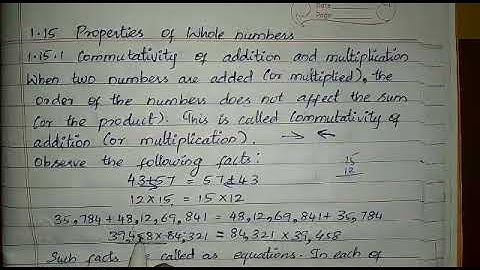 Date
Page
1.15 Properties of Whole numbers
1.15.1 Commutativity of addition and multiplication
When two numbers are added (or multiplied), the
order of the numbers does not affect the sum
(or the product). This is called commutativity of
addition (or multiplication).
Observe the following facts:
15
12
43+57 = 57+43
12×15 = 15×12
35,784 + 48,12,69,841 = 48,12,69,841 + 35,784
39,458 × 84,321 = 84,321 × 39,458
Such facts called as equations. In each of